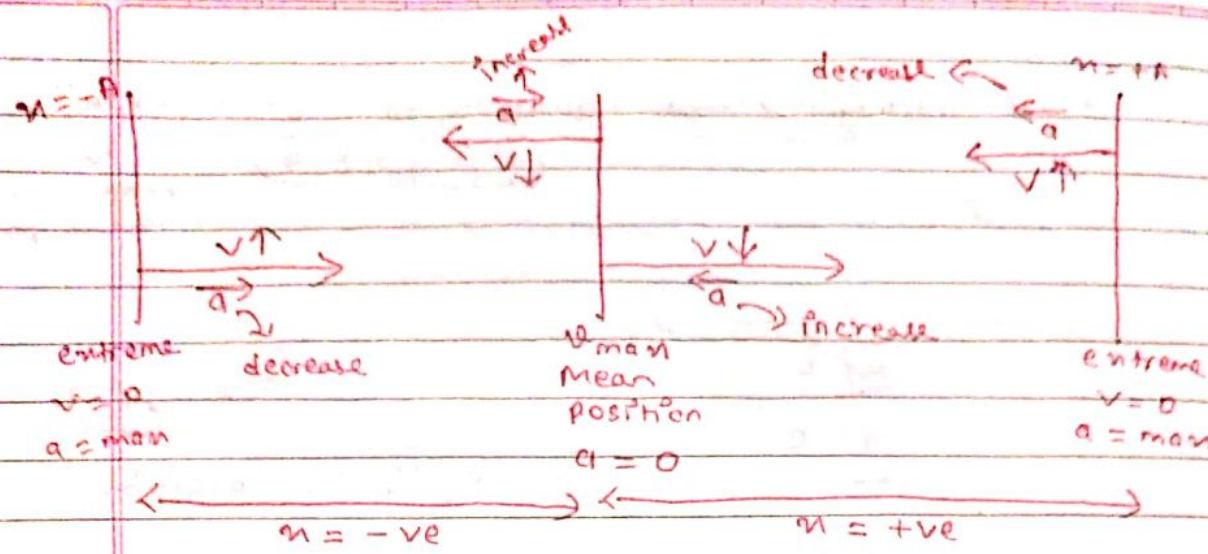 increase
decrease
x = -A
x = +A
a
a
V↓
V↑
V↑
V↓
a
a
decrease
increase
extreme
v = 0
a = max
v max
Mean
position
a = 0
extreme
v = 0
a = max
x = -ve
x = +ve